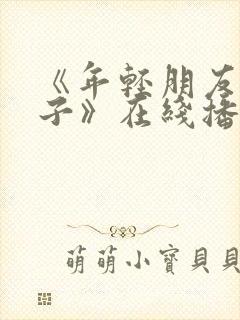 《年轻朋友
子》在线播
萌萌小寶貝貝